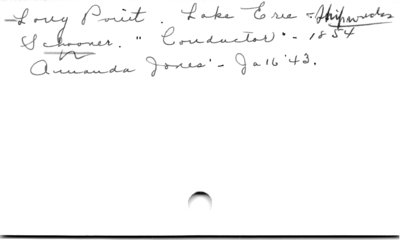 Long Point. Lake Erie - Shipwrecks
Schooner. "Conductor" - 1854
Amanda Jones - Ja 16 '43.